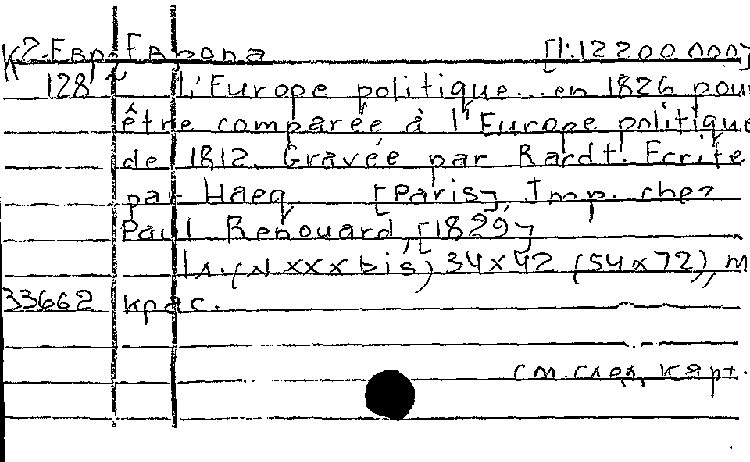 К2-Евр Европа [1:12 200 000]
128 L'Europe politique... en 1826 pour
être comparée à l'Europe politique
de 1812. Gravée par Rardt. Ecrite
par Hacq. [Paris], Imp. chez
Paul Renouard, [1829]
1 л. (N XXX bis) 34x42 (54x72), м
33662 крас.
см. след. карт.